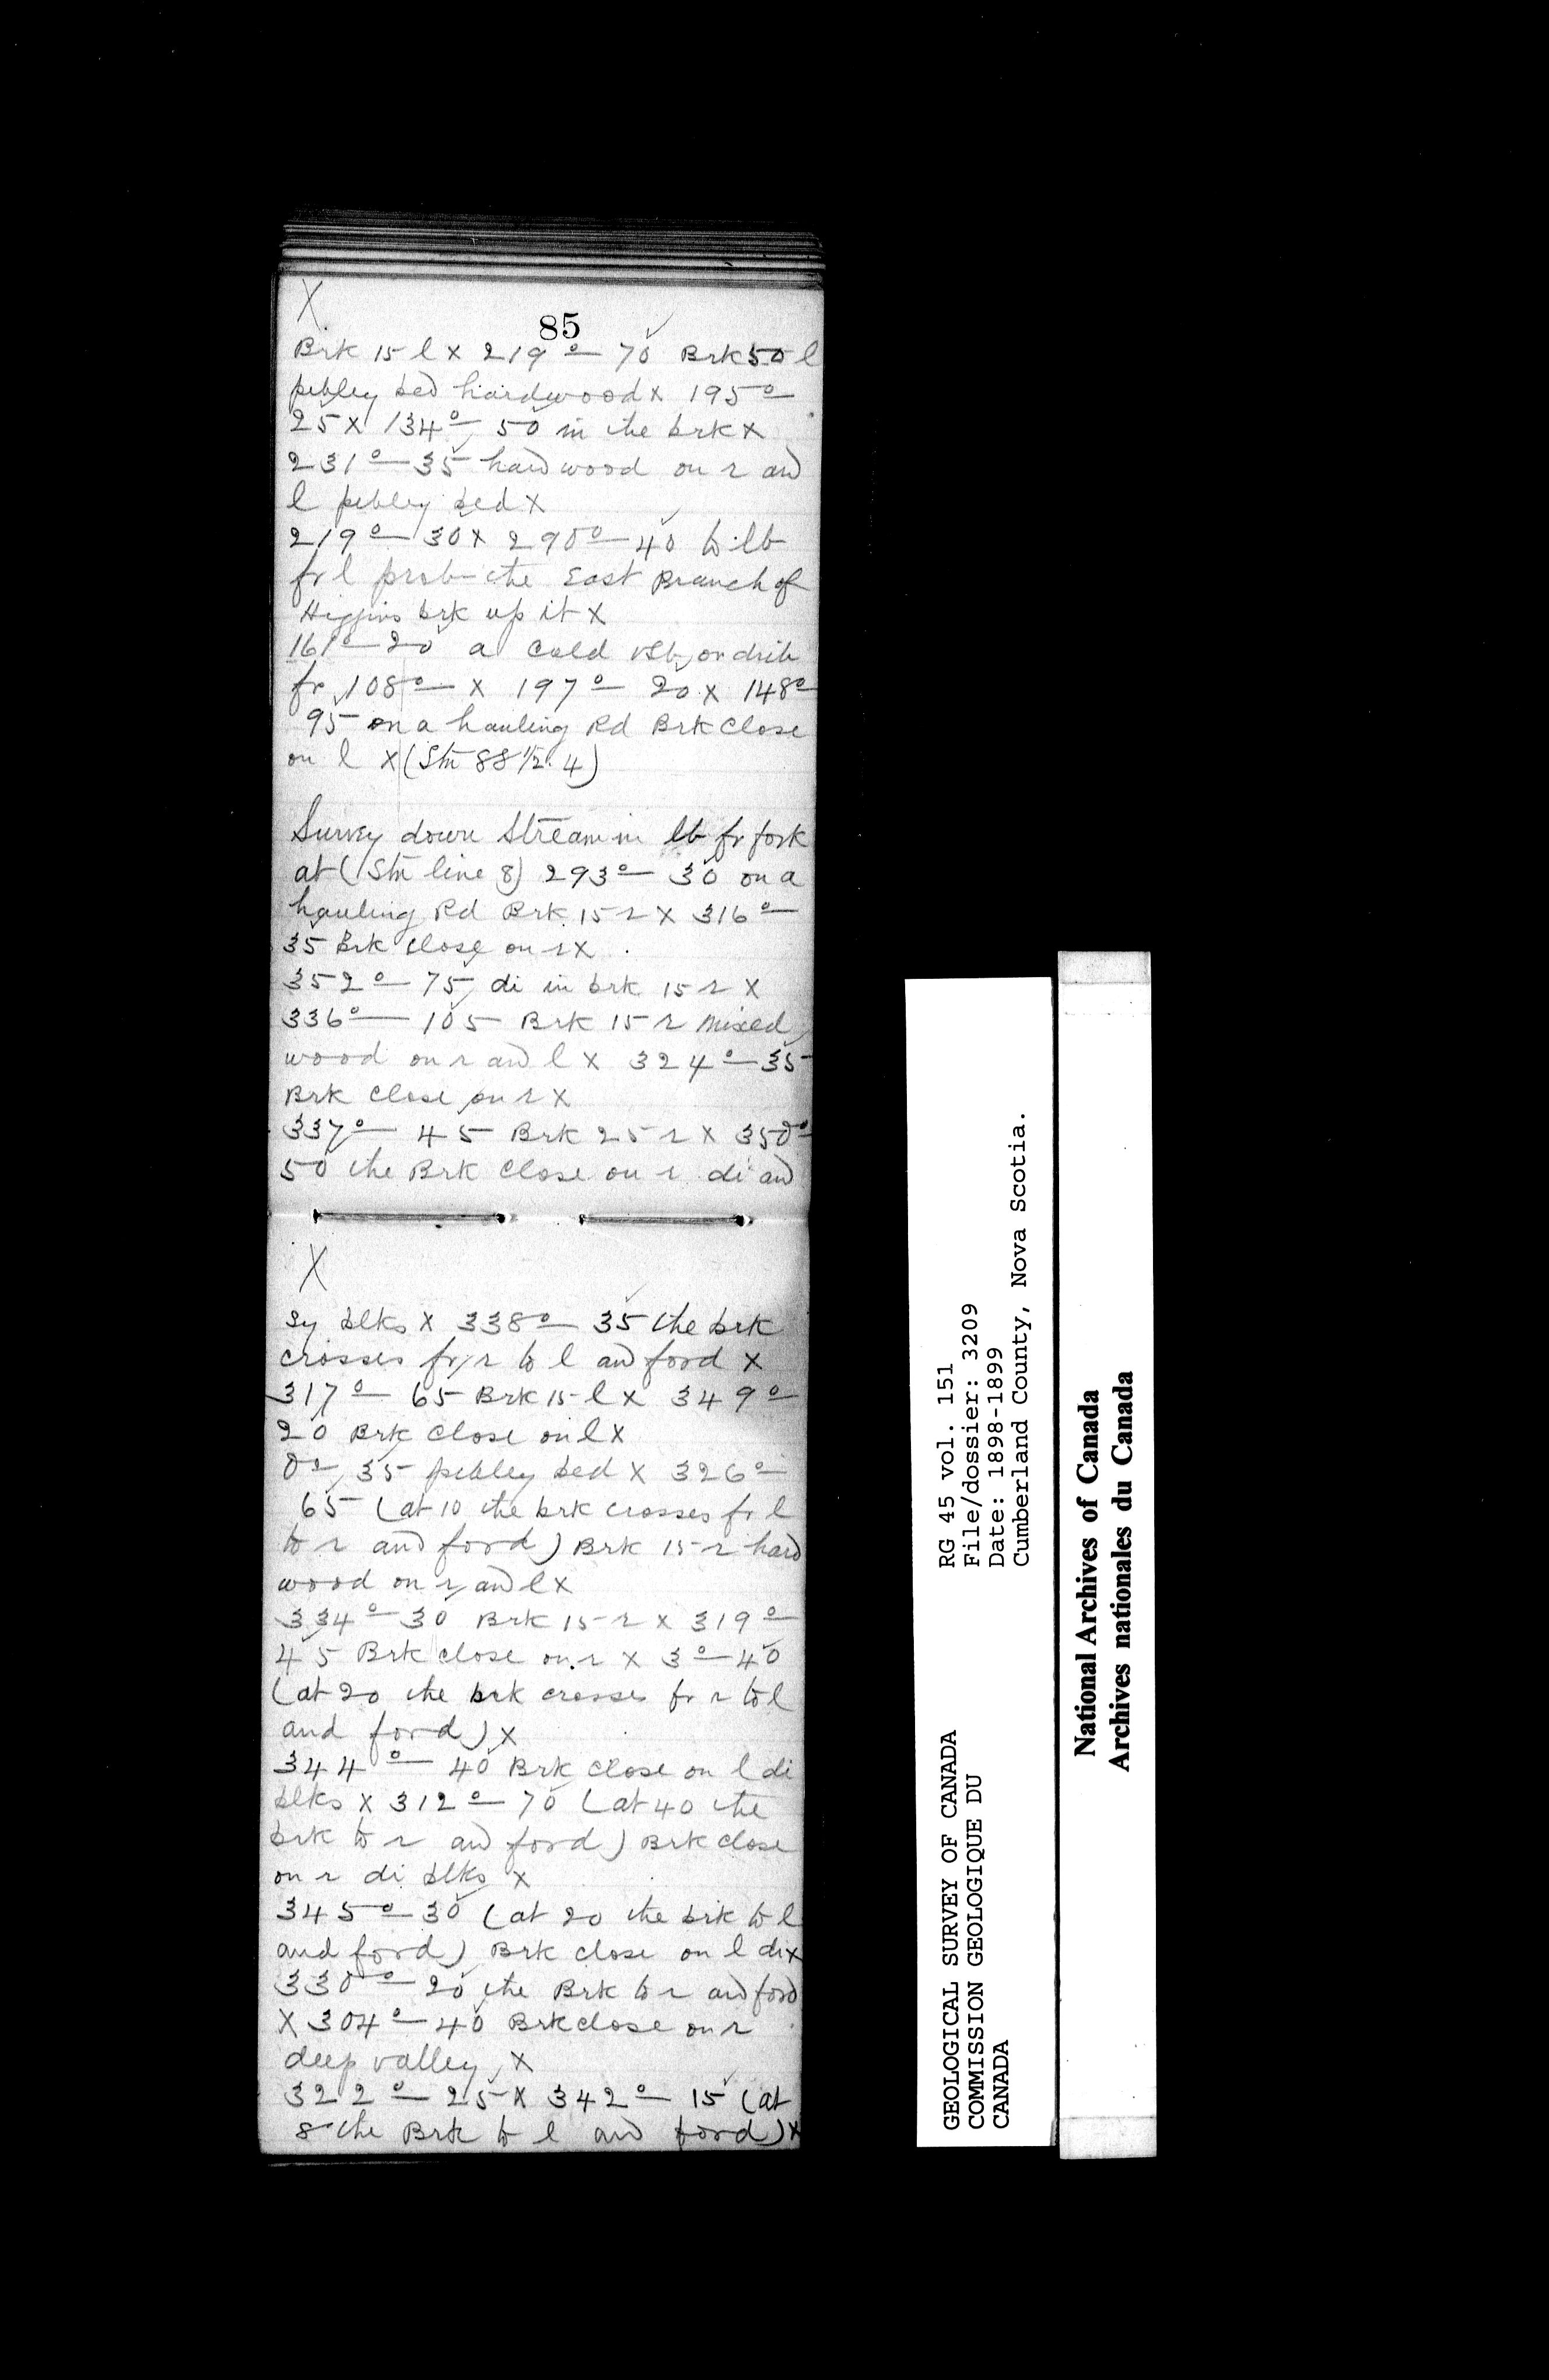 X
85
Brk 15 l x 219° — 70 Brk 50 l
pebley bed hardwood x 195° —
25 x 134° — 50 in the brk x
231° — 35 hardwood on r and
l pebley bed x
219° — 30 x 290° — 40 to lb
fr l prob the East Branch of
Higgins brk up it x
161° — 20 a cold or drib
fr 108° — x 197° — 20 x 148° —
95 on a hauling Rd Brk close
on l x (Stn 88 1/2. 4)
Survey down Stream in lb fr fork
at (Stn line 8) 293° — 30 on a
hauling Rd Brk 15 r x 316° —
35 Brk close on r x
352° — 75 di in brk 15 r x
336° — 105 Brk 15 r mixed
wood on r and l x 324° — 35
Brk close on r x
337° — 45 Brk 25 r x 350° —
50 the Brk close on r di and
X
sy blks x 338° — 35 the brk
crosses fr r to l and ford x
317° — 65 Brk 15 l x 349° —
20 Brk close on l x
0° — 35 pebley bed x 326° —
65 (at 10 the brk crosses fr l
to r and ford) Brk 15 r hard
wood on r and l x
334° — 30 Brk 15 r x 319° —
45 Brk close on r x 3° — 40
(at 20 the brk crosses fr r to l
and ford) x
344° — 40 Brk close on l di
blks x 312° — 70 (at 40 the
brk to r and ford) Brk close
on r di blks x
345° — 30 (at 20 the brk to l
and ford) Brk close on l di x
330° — 20 the Brk to r and ford
x 304° — 40 Brk close on r
deep valley x
322° — 25 x 342° — 15 (at
8 the Brk to l and ford) x
GEOLOGICAL SURVEY OF CANADA
COMMISSION GEOLOGIQUE DU
CANADA
RG 45 vol. 151
File/dossier: 3209
Date: 1898-1899
Cumberland County, Nova Scotia.
National Archives of Canada
Archives nationales du Canada